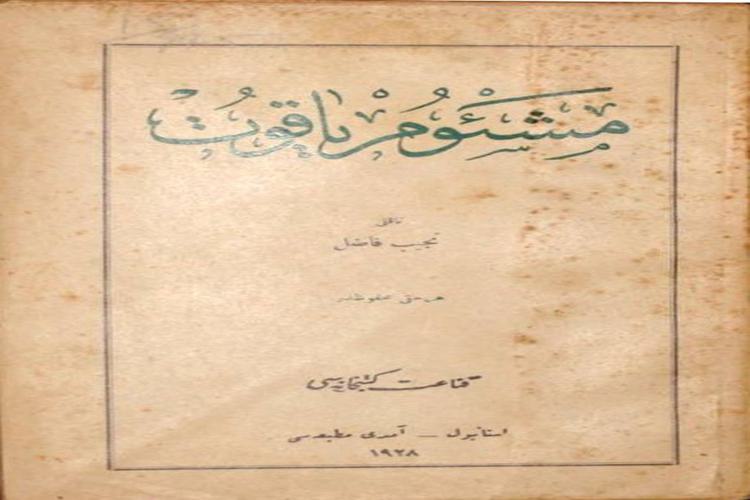 مشئوم ياقوت
ناقلى
نجيب فاضل
هر حق محفوظدر
قناعت كتبخانه سى
استانبول — آمدى مطبعه سى
١٩٢٨